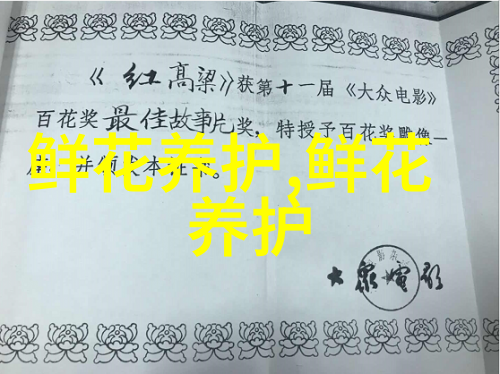 《红高粱》获第十一届《大众电影》
百花奖最佳故事片奖，特授予百花奖雕像一
并颁发本证书。
鲜花养护,鲜花
养护
大众电影